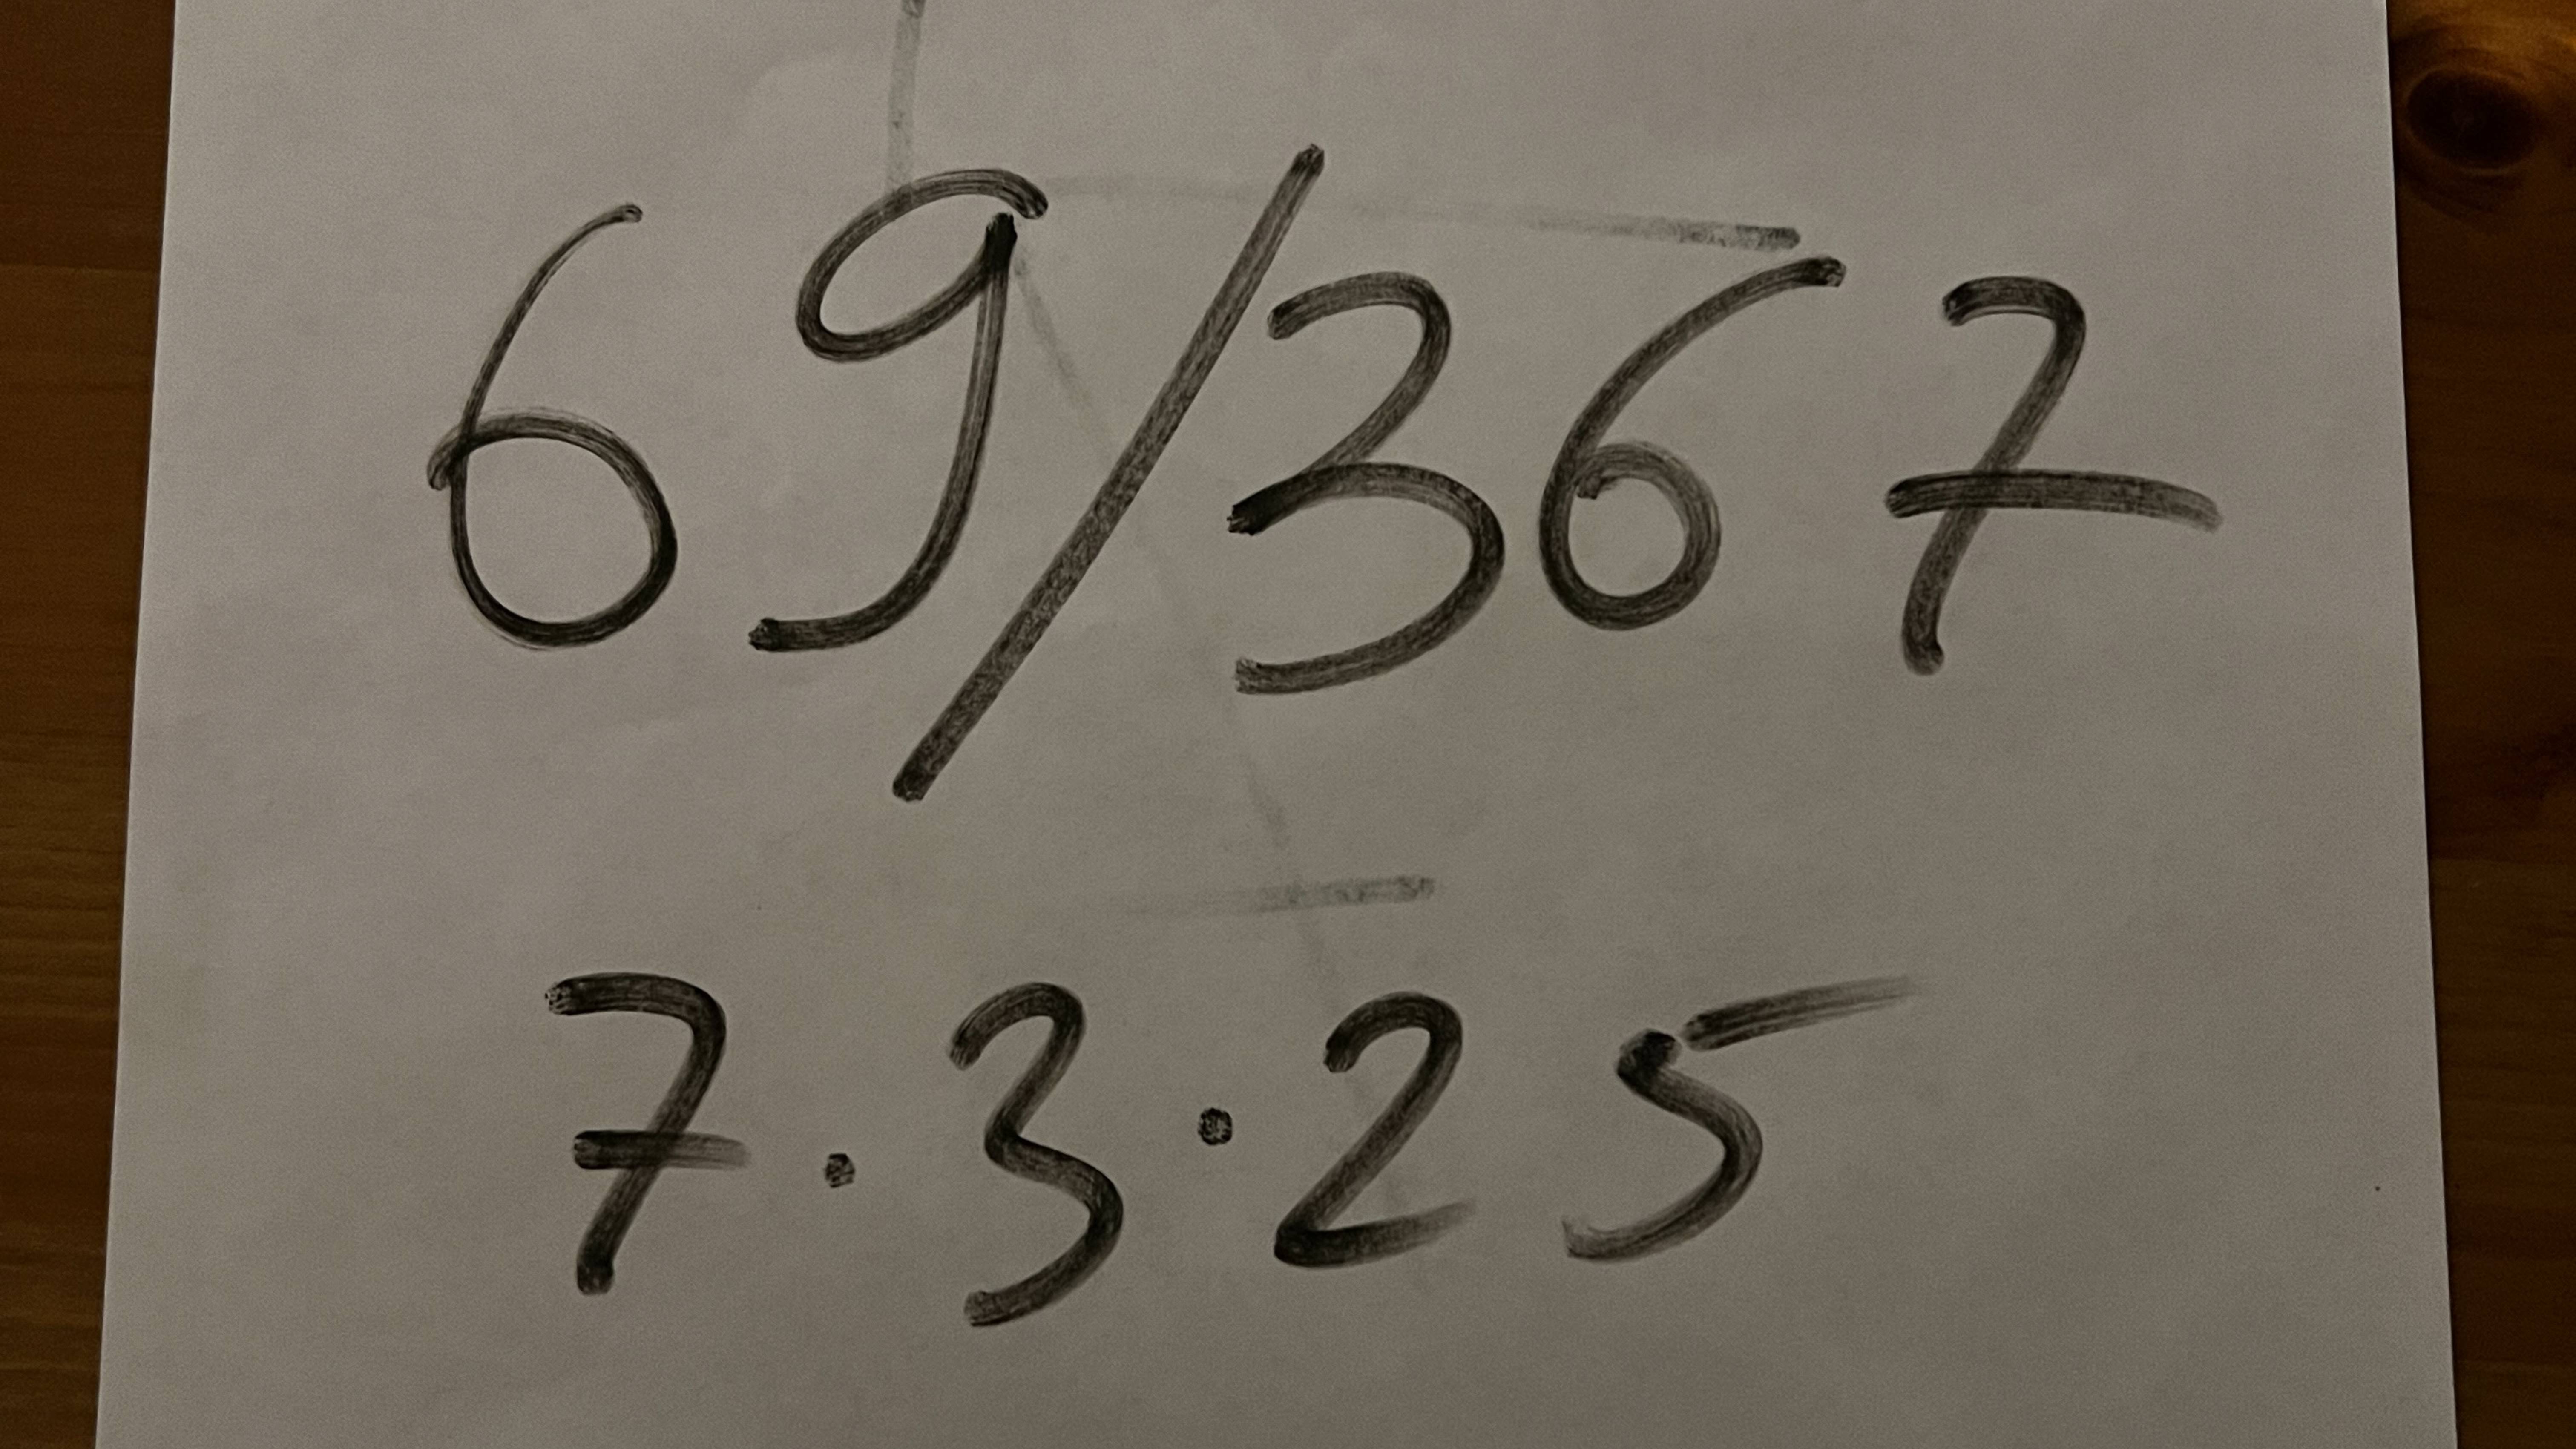 69/367
7.3.25